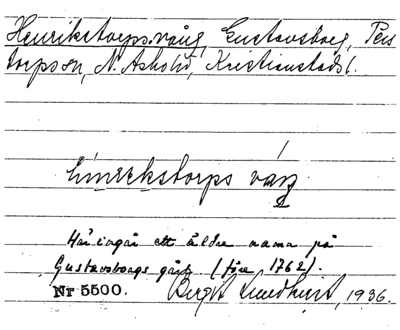 Henrikstorps vång, Gustavsborg, Pers
torps sn, N. Åsbo hd, Kristianstads l.
vång
Häri ingår ett äldre namn på
Gustavsborgs gård (före 1762).
Nr 5500. Birgit Lindkvist, 1936.